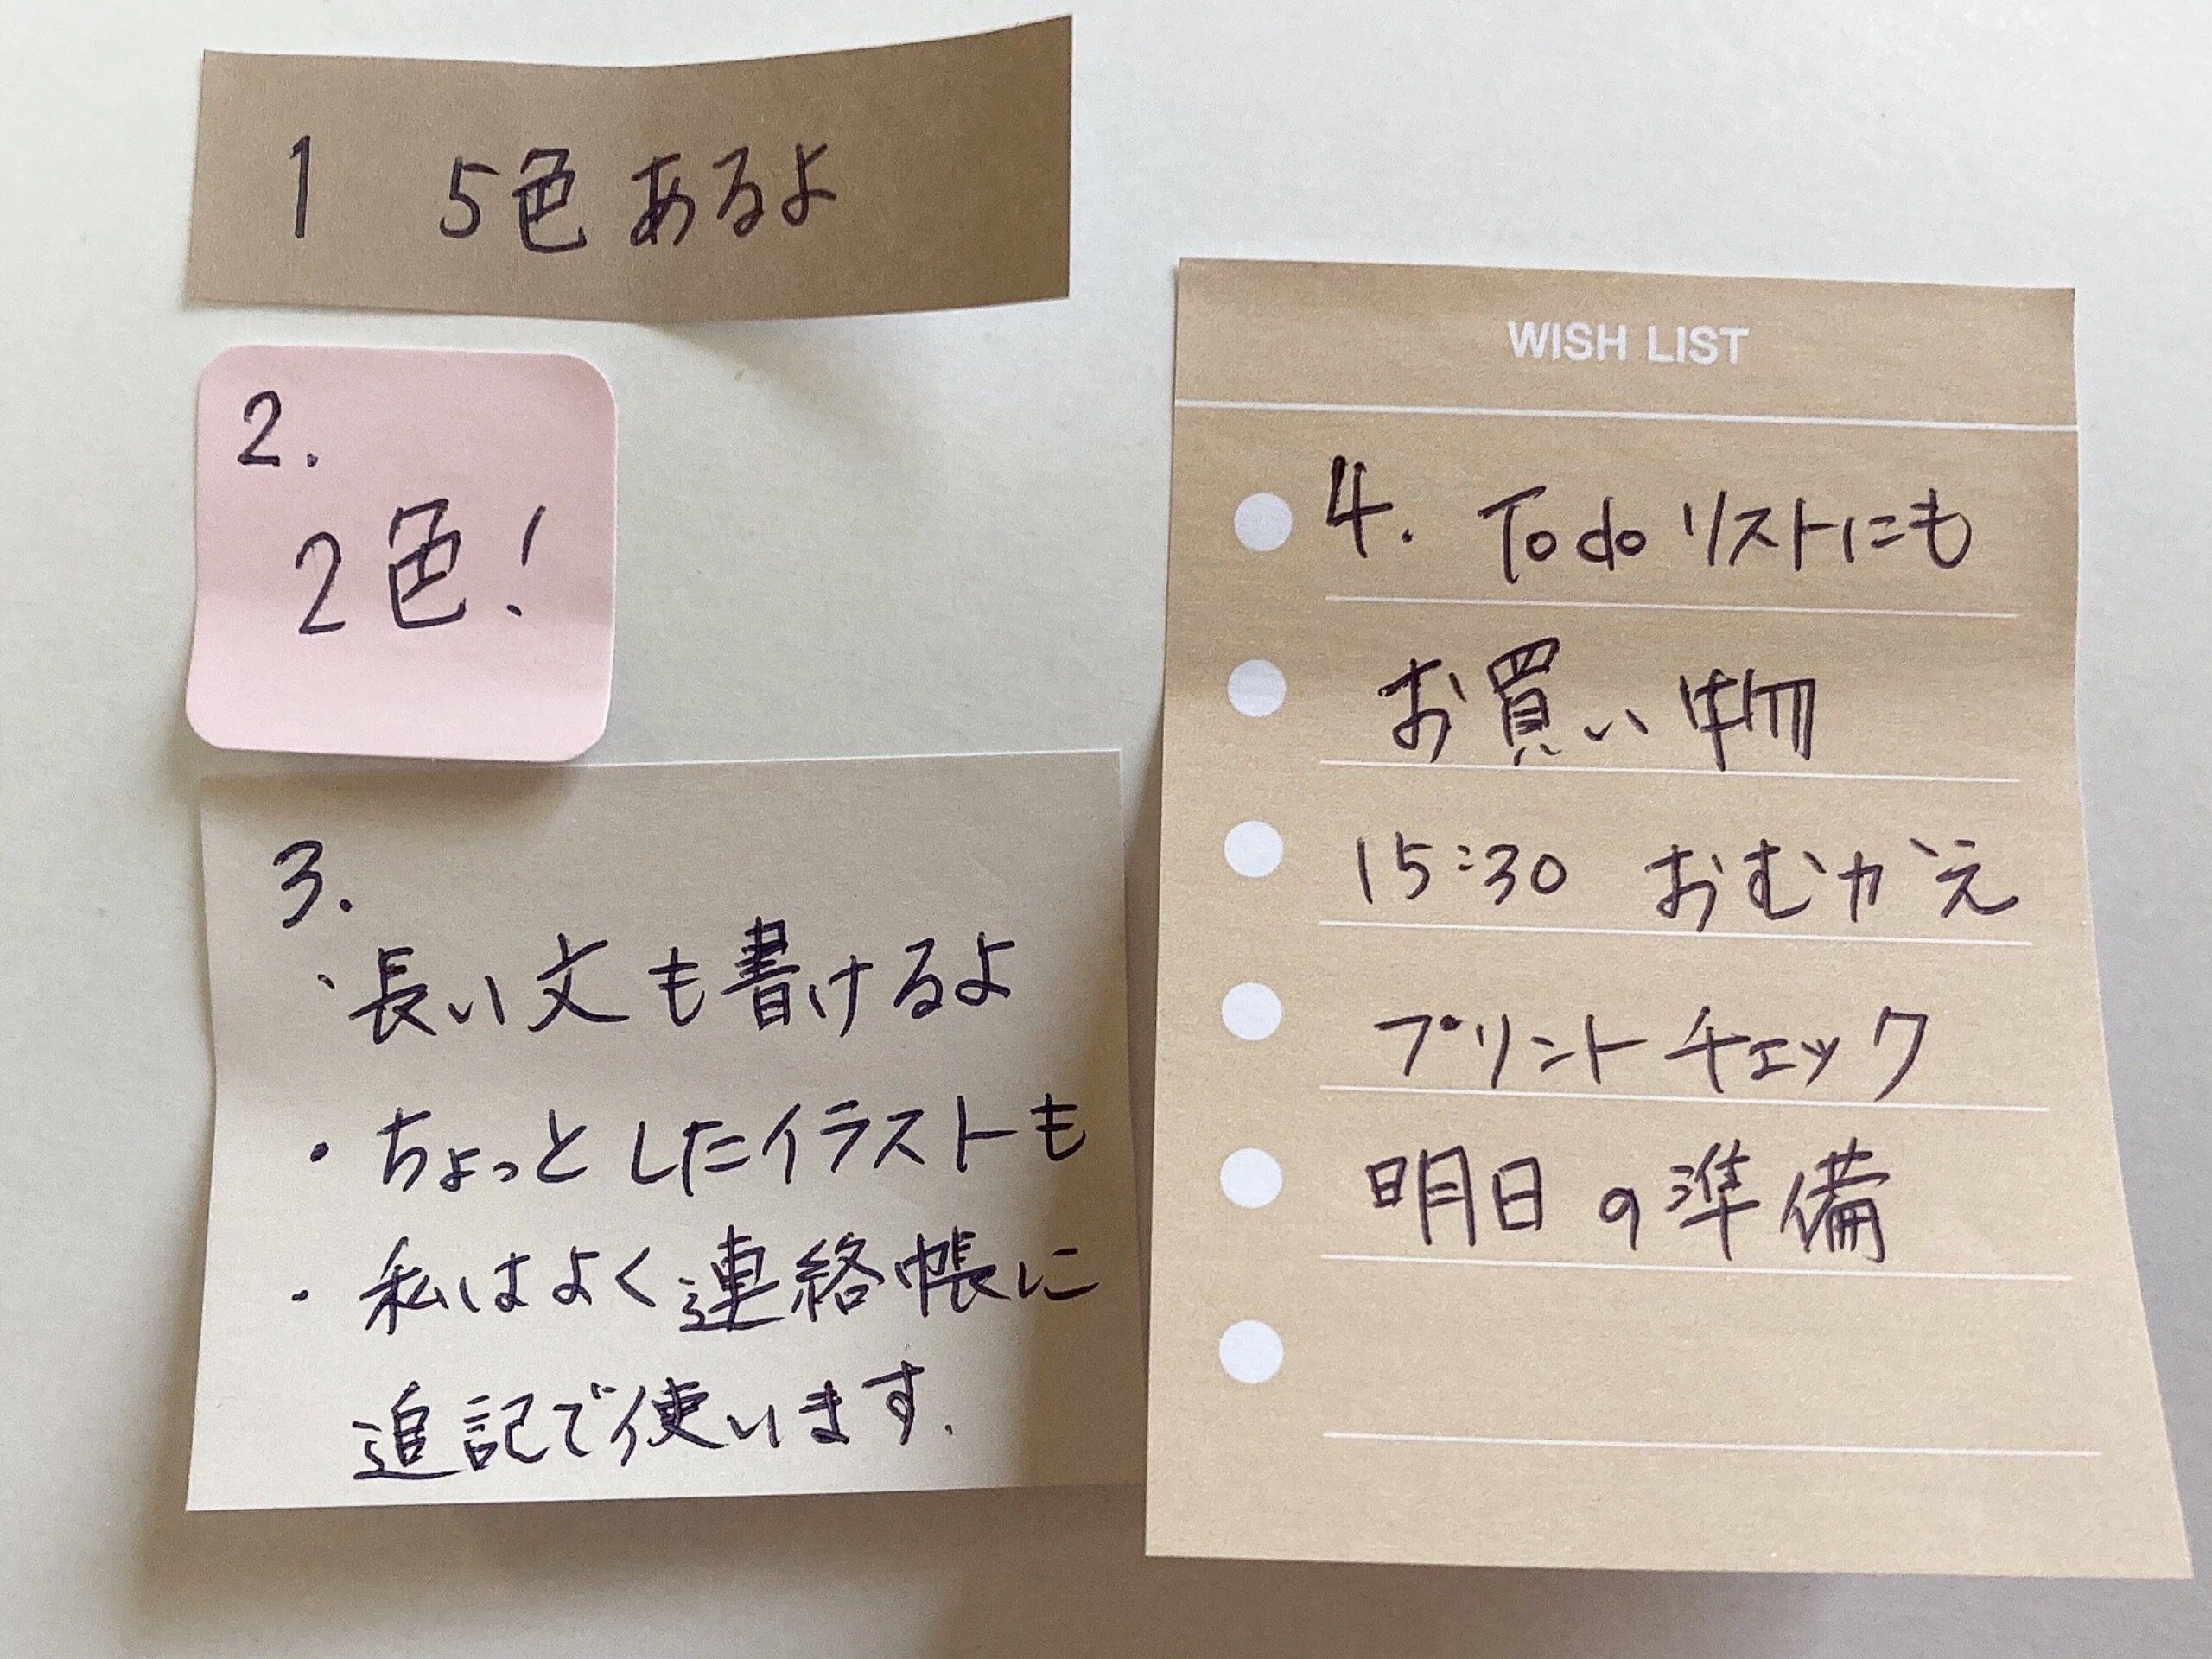 1 5色あるよ
2.
2色!
3.
・長い文も書けるよ
・ちょっとしたイラストも
・私はよく連絡帳に
追記で使います.
WISH LIST
4. Todoリストにも
お買い物
15:30 おむかえ
プリントチェック
明日の準備